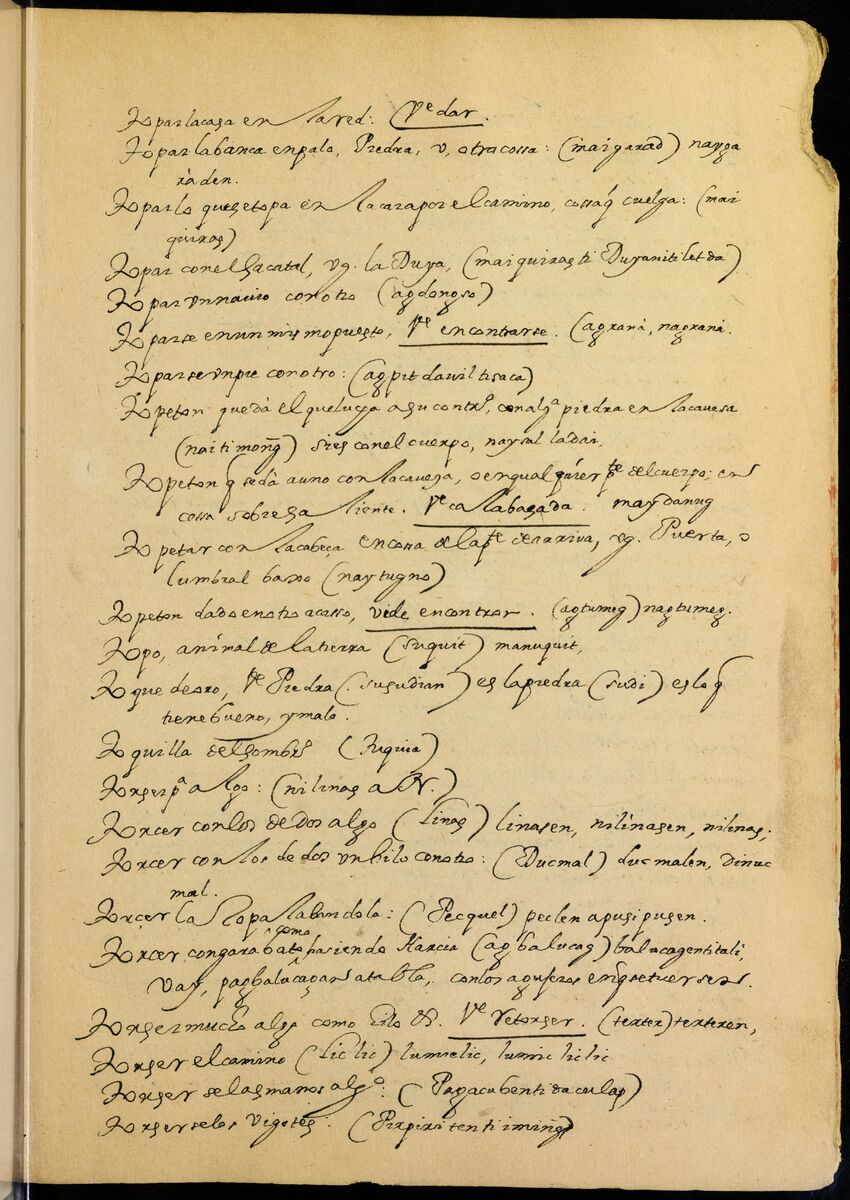 Topar la caza en la red: (Vᵉ dar.
Topar la banca en palo, Piedra, v, otra cossa: (mai garad) nayga
raden.
Topar lo que se topa en la cara por el camino, cossa q̃ cuelga: (mai
quiras)
Topar con el sacatal, vg. la Duya, (mai quiras ti Duyaniti let da)
Topar vn nauio con otro (agdongso)
Toparse en un mismo puesto, Vᵉ encontrarse. (agrana, nagrana.
Toparse vn pie con otro: (agpit daul ti saca)
Topeton que dà el que lucha a su contrᵒ, con algᵃ piedra en la cauesa
(nai ti mong̃) si es con el cuerpo, naysal ladai.
Topeton q̃ se dà a uno con la caueza, o en qual quier pᵗᵉ del cuerpo; en
cossa sobresaliente. Vᵉ calabasada. maydanug
Topetar con la cabeça en cossa de la pᵗᵉ de arriva, vg. Puerta, o
lumbral baxo (naytugno)
Topeton dado en otro acasso, vide encontror. (agtumeg) nagtumeg.
Topo, animal de la tierra (suquit) manuquit,
Toque de oro, Vᵉ Piedra (susudian) es la piedra (sudi) es lo q̃
tiene bueno, y malo.
Toquilla del sombrᵒ (Tuquia)
Torserpᵃ algo: (nilinas a N.)
Torcer con los dedos algo (Linas) linasen, nilinasen, nilinas;
Torcer con los dedos vn hilo con otro: (Ducmal) ducmalen, dinuc
mal.
Torcer la Ropa labandola: (Pecquel) peclen apusipusen.
Torcer con garabato como hasiendo Harcia (agbalucag) balucagentitali,
Vay, pagbalucagan a tabla, con los agujeros en q̃ se tuersen.
Torser mucho algo como hilo &. Vᵉ Retorser. (terter) terteren,
Torser el camino (Lic lic) lumiclic, lumic liclic
Torserse las manos algᵒ: (Pagacubenti daculap)
Torserse los vigotes: (Pirpiri ten ti iming̃)